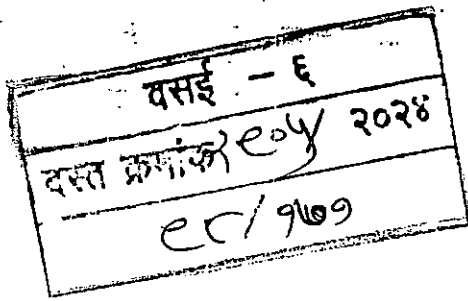 वसई - ६
दस्त क्रमांक २०२४
९८/१७१